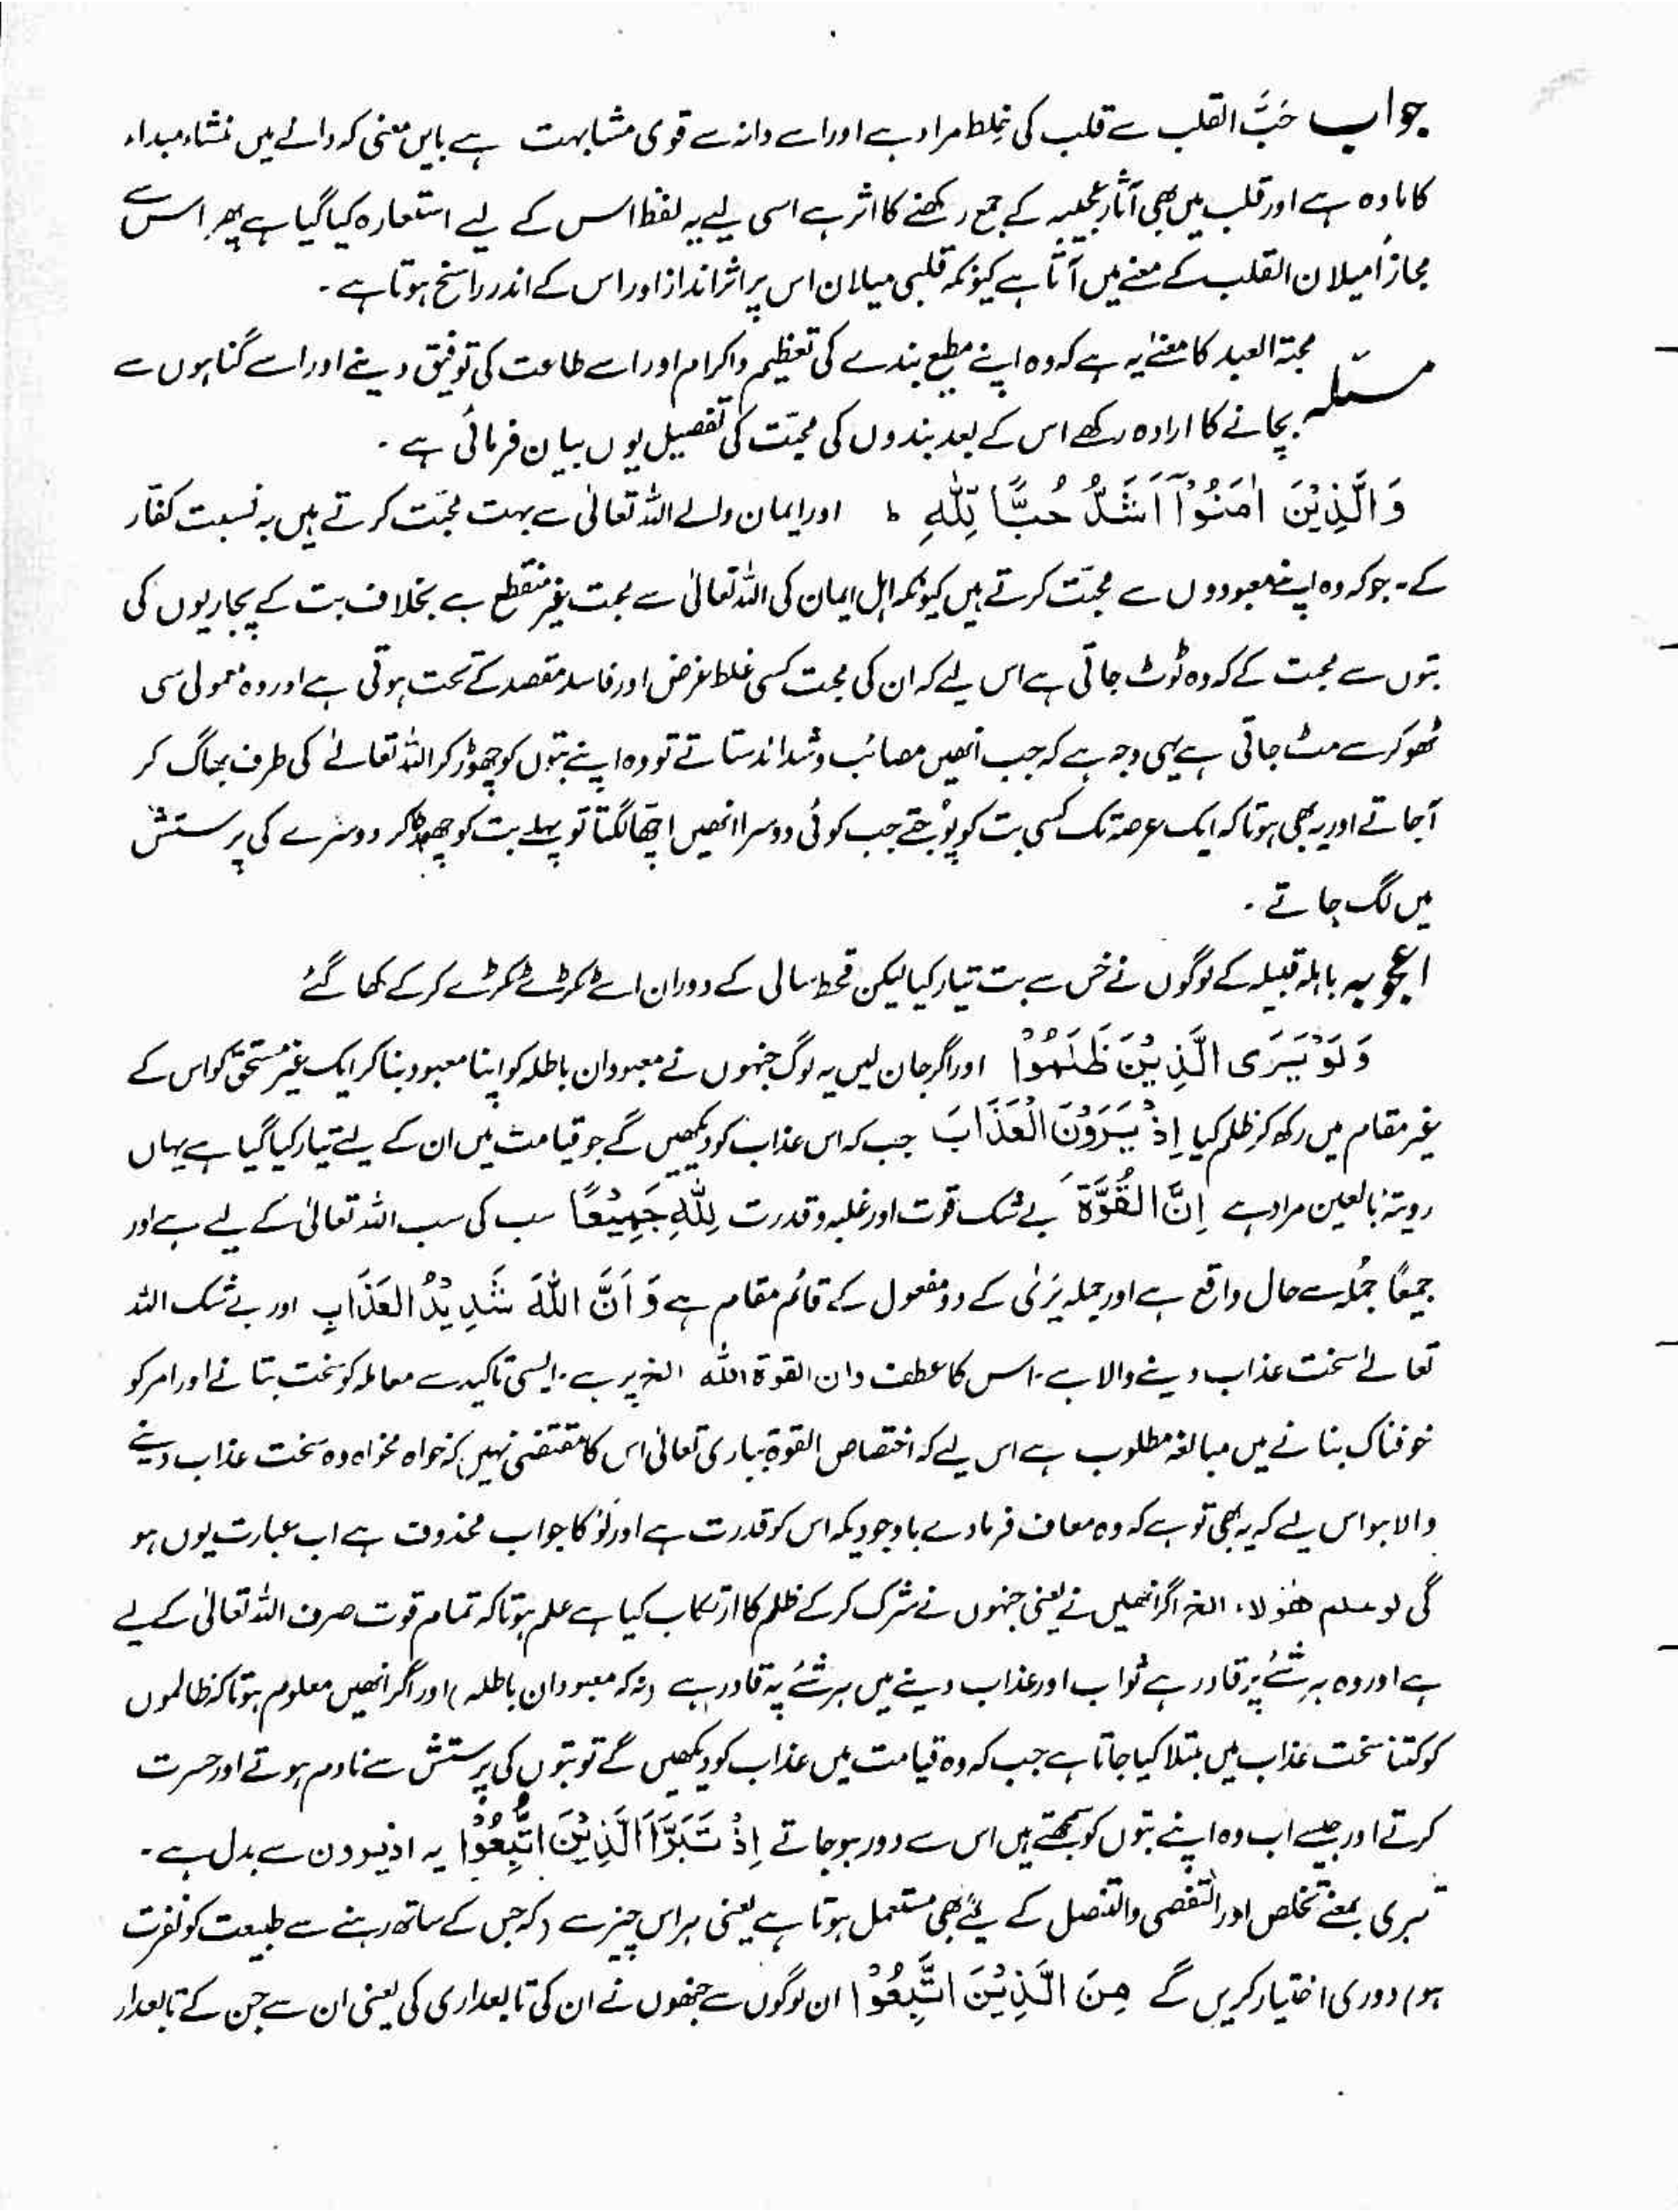 جواب حَبُّ القلب سے قلب کی خِلط مراد ہے اور اسے دانہ سے قوی مشابہت ہے بایں معنی کہ دانے میں نشاء مبداء
کا مادہ ہے اور قلب میں بھی آثار عجیبہ کے جمع رکھنے کا اثر ہے اسی لیے یہ لفظ اس کے لیے استعارہ کیا گیا ہے پھر اس سے
مجازاً میلان القلب کے معنے میں آتا ہے کیونکہ قلبی میلان اس پر اثر انداز اور اس کے اندر راسخ ہوتا ہے ۔
مسئلہ محبۃ العبد کا معنےٰ یہ ہے کہ وہ اپنے مطیع بندے کی تعظیم و اکرام اور اسے طاعت کی توفیق دینے اور اسے گناہوں سے
بچانے کا ارادہ رکھے اس کے بعد بندوں کی محبّت کی تفصیل یوں بیان فرمائی ہے ۔
وَالَّذِیْنَ اٰمَنُوْۤا اَشَدُّ حُبًّا لِّلّٰهِ ط اور ایمان والے اللہ تعالیٰ سے بہت محبّت کرتے ہیں بہ نسبت کفّار
کے ۔ جو کہ وہ اپنے معبودوں سے محبّت کرتے ہیں کیونکہ اہل ایمان کی اللہ تعالیٰ سے محبت غیر منقطع ہے بخلاف بت کے پجاریوں کی
بتوں سے محبت کے کہ وہ ٹوٹ جاتی ہے اس لیے کہ ان کی محبت کسی غلط غرض اور فاسد مقصد کے تحت ہوتی ہے اور وہ معمولی سی
ٹھوکر سے مٹ جاتی ہے یہی وجہ ہے کہ جب انھیں مصائب و شدائد ستاتے تو وہ اپنے بتوں کو چھوڑ کر اللہ تعالےٰ کی طرف بھاگ کر
آجاتے اور یہ بھی ہوتا کہ ایک عرصہ تک کسی بت کو پوُجتے جب کوئی دوسرا انھیں اچّھا لگتا تو پہلے بت کو چھوڑ کر دوسرے کی پرستش
میں لگ جاتے ۔
اعجوبہ باہلہ قبیلہ کے لوگوں نے خس سے بت تیار کیا لیکن قحط سالی کے دوران اسے ٹکڑے ٹکڑے کرکے کھا گئے
وَلَوْ یَرَی الَّذِیْنَ ظَلَمُوْۤا اور اگر جان لیں یہ لوگ جنہوں نے معبودان باطلہ کو اپنا معبود بنا کر ایک غیر مستحق کو اس کے
غیر مقام میں رکھ کر ظلم کیا اِذْ یَرَوْنَ الْعَذَابَ جب کہ اس عذاب کو دیکھیں گے جو قیامت میں ان کے لیے تیار کیا گیا ہے یہاں
رویتہ بالعین مراد ہے اِنَّ الْقُوَّةَ بے شک قوت اور غلبہ و قدرت لِلّٰهِ جَمِیْعًا سب کی سب اللہ تعالیٰ کے لیے ہے اور
جمیعًا جُملہ سے حال واقع ہے اور جملہ یَرٰی کے دو مفعول کے قائم مقام ہے وَ اَنَّ اللّٰهَ شَدِیْدُ الْعَذَابِ اور بے شک اللہ
تعالےٰ سخت عذاب دینے والا ہے ۔ اس کا عطف وان القوة اللہ الخ پر ہے ۔ ایسی تاکید سے معاملہ کو سخت بتانے اور امر کو
خوفناک بنانے میں مبالغہ مطلوب ہے اس لیے کہ اختصاص القوة بباری تعالیٰ اس کا مقتضی نہیں کہ خواہ مخواہ وہ سخت عذاب دینے
والا ہو اس لیے کہ یہ بھی تو ہے کہ وہ معاف فرما دے باوجودیکہ اس کو قدرت ہے اور لَوْ کا جواب محذوف ہے اب عبارت یوں ہو
گی لو علم ھٰؤلاء الخ اگر انھیں نے یعنی جنہوں نے شرک کرکے ظلم کا ارتکاب کیا ہے علم ہوتا کہ تمام قوت صرف اللہ تعالیٰ کے لیے
ہے اور وہ ہر شئے پر قادر ہے ثواب اور عذاب دینے میں ہر شئے پہ قادر ہے (نہ کہ معبودان باطلہ) اور اگر انھیں معلوم ہوتا کہ ظالموں
کو کتنا سخت عذاب میں مبتلا کیا جاتا ہے جب کہ وہ قیامت میں عذاب کو دیکھیں گے تو بتوں کی پرستش سے نادم ہوتے اور حسرت
کرتے اور جیسے اب وہ اپنے بتوں کو سمجھتے ہیں اس سے دور ہو جاتے اِذْ تَبَرَّاَ الَّذِیْنَ اتُّبِعُوْا یہ اذیرون سے بدل ہے ۔
تبری بمعنے تخلص اور التفصی والتنصل کے لئے بھی مستعمل ہوتا ہے یعنی ہر اس چیز سے (کہ جس کے ساتھ رہنے سے طبیعت کو نفرت
ہو) دوری اختیار کریں گے مِنَ الَّذِیْنَ اتَّبَعُوْا ان لوگوں سے جنھوں نے ان کی تابعداری کی یعنی ان سے جن کے تابعدار